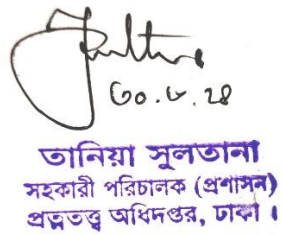 ৩০.৬.২৪
তানিয়া সুলতানা
সহকারী পরিচালক (প্রশাসন)
প্রত্নতত্ত্ব অধিদপ্তর, ঢাকা।